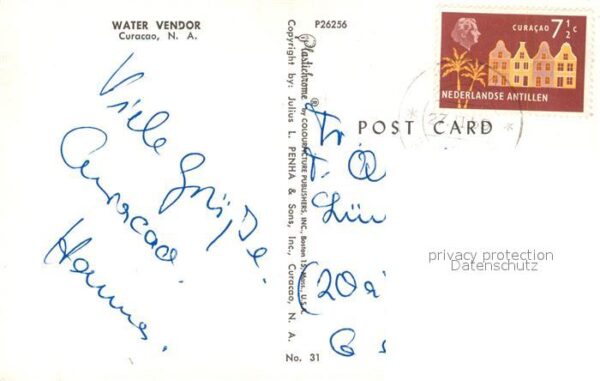 WATER VENDOR
Curacao, N. A.
Viele Grüße
Curacao.
Hannes.
P26256
Plastichrome ® by COLOURPICTURE PUBLISHERS, INC., Boston 15, Mass., U.S.A.
Copyright by: Julius L. PENHA & Sons, Inc., Curacao, N. A.
No. 31
CURAÇAO 7½ C
NEDERLANDSE ANTILLEN
POST CARD
privacy protection
Datenschutz
(20a